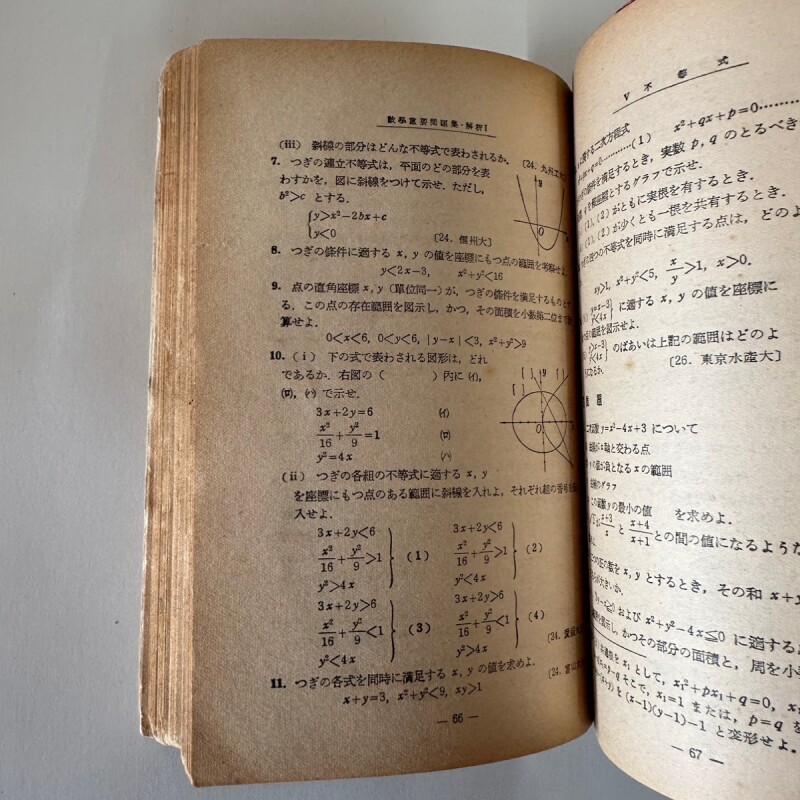 数學重要問題集・解析I
(iii) 斜線の部分はどんな不等式で表わされるか.
7. つぎの連立不等式は，平面のどの部分を表
わすかを，図に斜線をつけて示せ．ただし，
b²>c とする．
y>x²−2bx+c
y<0
〔24. 信州大〕
y
O
x
8. つぎの條件に適する x, y の値を座標にもつ点の範囲を考察せよ．
y<2x−3, x²+y²<16
9. 点の直角座標 x, y (単位同一) が，つぎの條件を満足するものとす
る．この点の存在範囲を図示し，かつ，その面積を小数第二位まで
算せよ．
0<x<6, 0<y<6, |y−x|<3, x²+y²>9
10. (i) 下の式で表わされる図形は，どれ
であるか．右図の( )内に(イ),
(ロ), (ハ) で示せ．
3x+2y=6 (イ)
x²/16+y²/9=1 (ロ)
y²=4x (ハ)
[ ] [ ]
O
(ii) つぎの各組の不等式に適する x, y
を座標にもつ点のある範囲に斜線を入れよ，それぞれ組の番号を
入せよ．
3x+2y<6
x²/16+y²/9>1 (1)
y²>4x
3x+2y<6
x²/16+y²/9>1 (2)
y²<4x
3x+2y>6
x²/16+y²/9<1 (3)
y²<4x
3x+2y>6
x²/16+y²/9<1 (4)
y²>4x
11. つぎの各式を同時に満足する x, y の値を求めよ．
x+y=3, x²+y²<9, xy>1
— 66 —
V 不等式
二次方程式
(1) x²+qx+p=0………
満足するとき，実数 p, q のとるべき
とするグラフで示せ．
(1), (2) がともに実根を有するとき．
(1), (2) が少くとも一根を共有するとき．
の不等式を同時に満足する点は，どのよ
xy>1, x²+y²<5, x/y>1, x>0.
に適する x, y の値を座標に
範囲を図示せよ．
のばあいは上記の範囲はどのよ
になるか．
〔26. 東京水産大〕
題
函数 y=x²−4x+3 について
軸と交わる点
y の値が負となる x の範囲
のグラフ
この函数 y の最小の値 を求めよ．
x+3/x と x+4/x+1 との間の値になるような
の数を x, y とするとき，その和 x+y
および x²+y²−4x≦0 に適する
図示し，かつその部分の面積と，周を小数
x₁ として，x₁²+px₁+q=0,
そこで，x₁=1 または，p=q を
(x−1)(y−1)−1 と変形せよ．
— 67 —